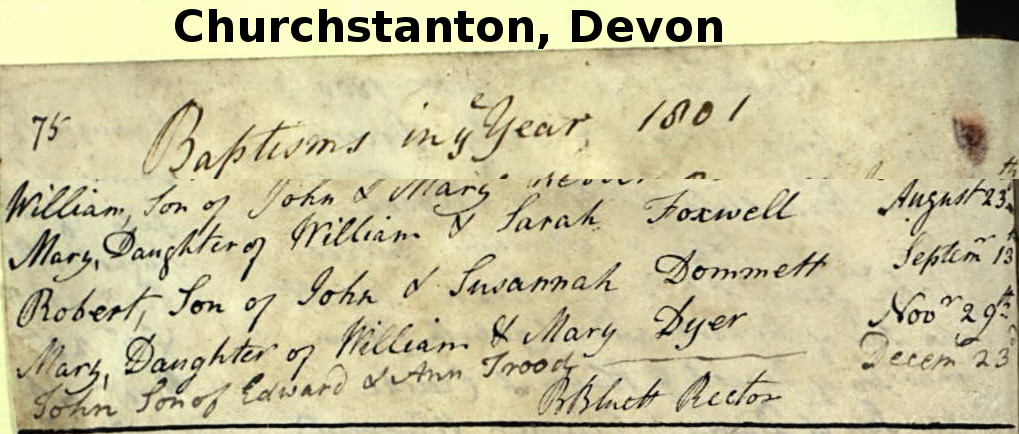 Churchstanton, Devon
75
Baptisms in yͤ Year 1801
William, Son of John & Mary August 23
Mary, Daughter of William & Sarah Foxwell Septemʳ 13ᵗʰ
Robert, Son of John & Susannah Dommett Novʳ 29ᵗʰ
Mary, Daughter of William & Mary Dyer Decemʳ 23ᵈ
John Son of Edward & Ann Trood
Bluett Rector